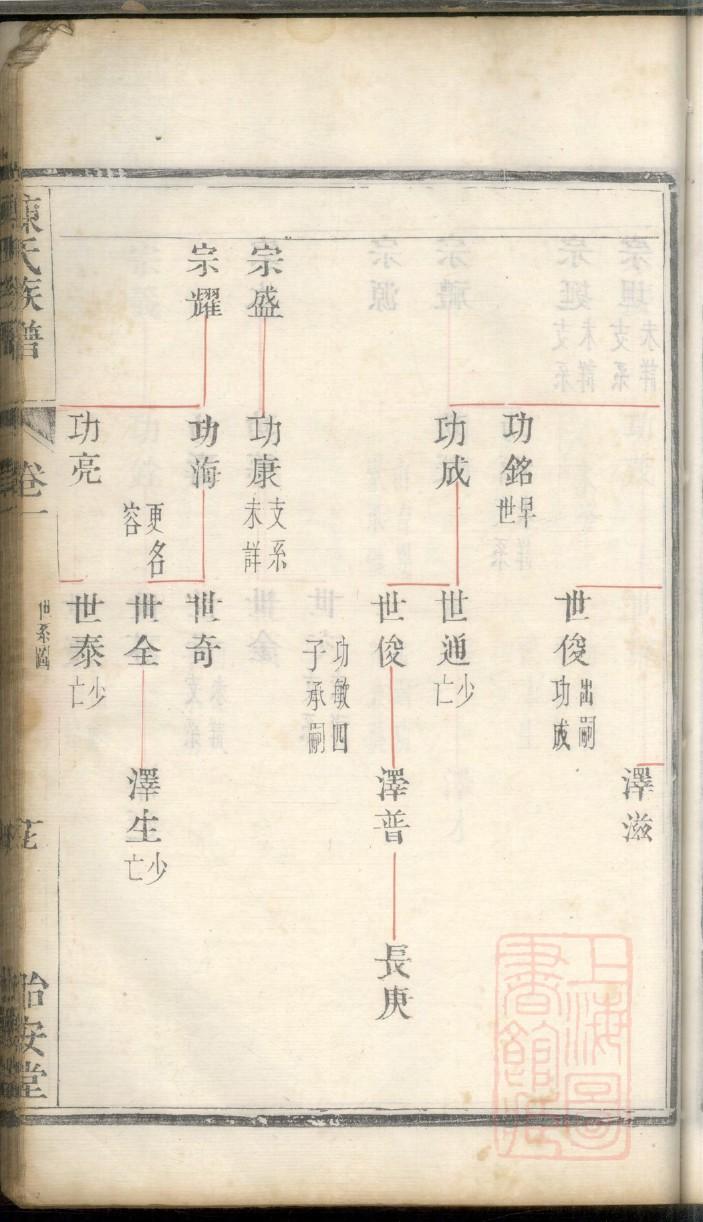 澤滋
功銘
早世
世俊
出嗣
功成
功成
世通
少亡
世俊
功敏四
子承嗣
澤普
長庚
宗盛
功康
支系
未詳
宗耀
功海
更名
容
世奇
世全
澤生
少亡
功亮
世泰
少亡
陳氏族譜
卷一
世系圖
怡安堂
上海圖
書館藏